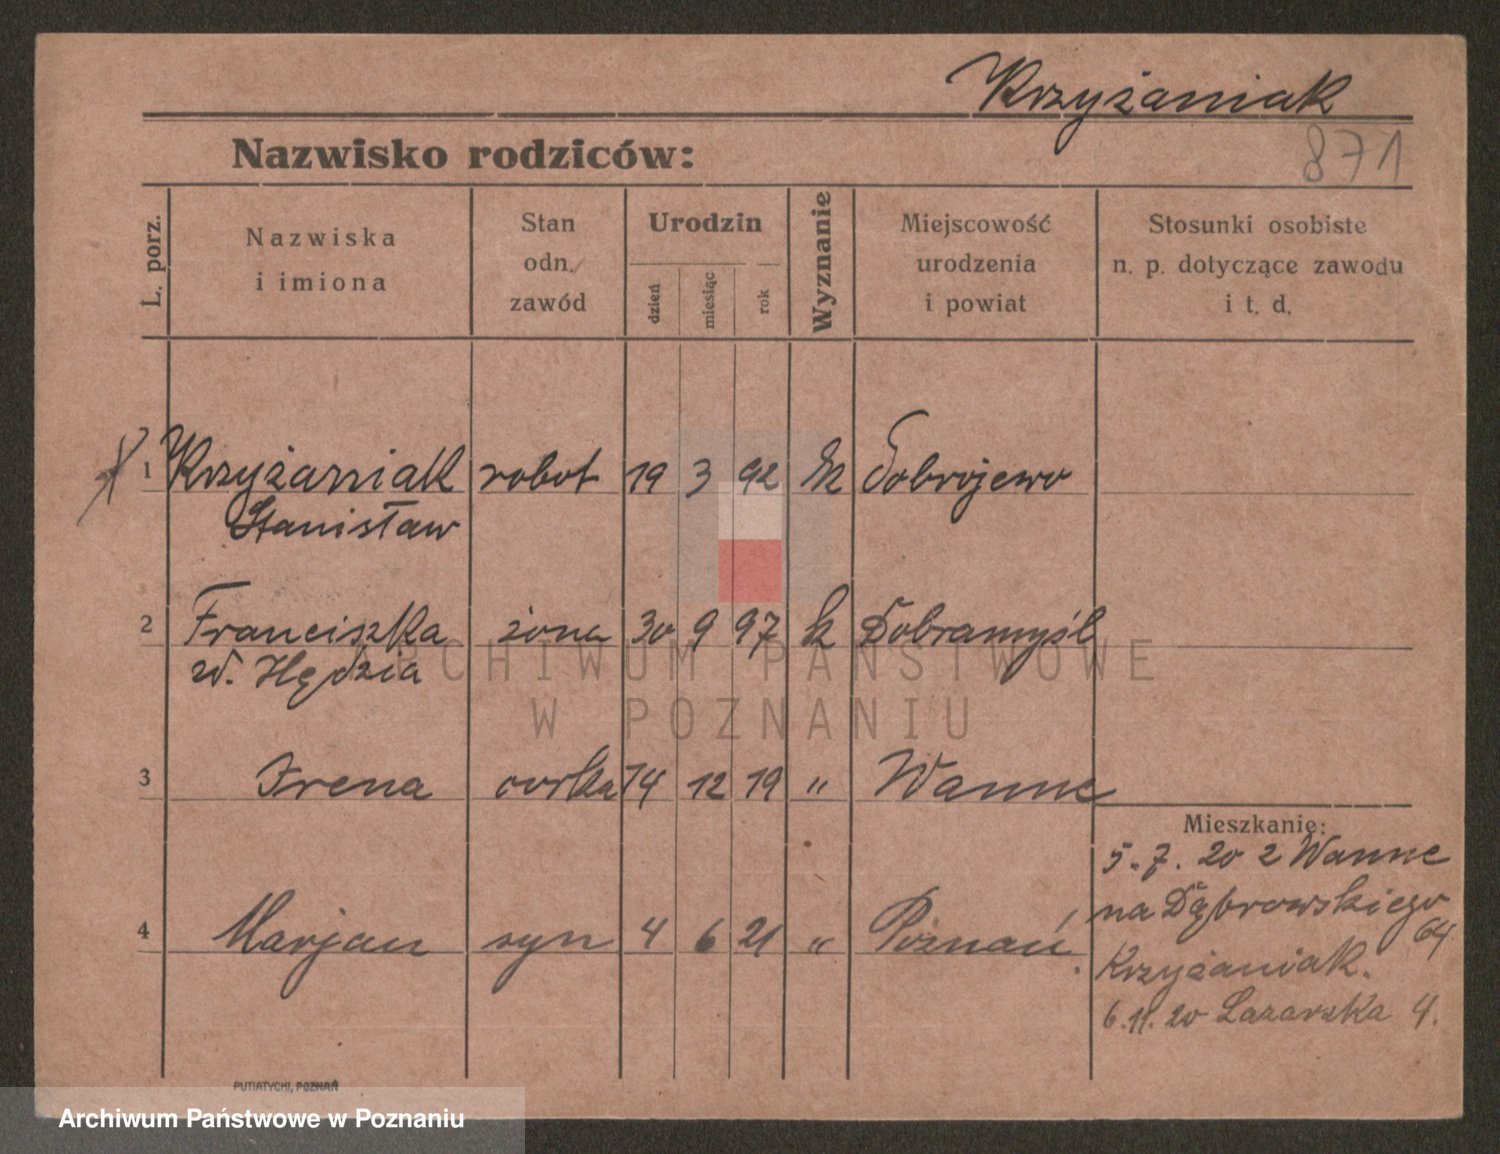 Krzyżaniak
871
Nazwisko rodziców:
L. porz.
Nazwiska
i imiona
Stan
odn.
zawód
Urodzin
dzień
miesiąc
rok
Wyznanie
Miejscowość
urodzenia
i powiat
Stosunki osobiste
n. p. dotyczące zawodu
i t. d.
1 Krzyżaniak robot 19 3 92 rk Dobrojewo
Stanisław
2 Franciszka żona 30 9 97 k Dobramyśl
Hędzia
3 Irena corka 14 12 19 " Wanne
Mieszkanie:
5.7.20 z Wanne
na Dąbrowskiego
64
4 Marjan syn 4 6 21 " Poznań
Krzyżaniak.
6.11.20 Lazarska 4.
PUTIATYCKI, POZNAŃ
ARCHIWUM PAŃSTWOWE
W POZNANIU
Archiwum Państwowe w Poznaniu